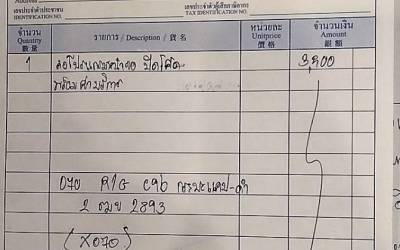 Address
เลขประจำตัวประชาชน เลขประจำตัวผู้เสียภาษีอากร
IDENTIFICATION NO. TAX IDENTIFICATION NO.
จำนวน รายการ / Description / 貨名 หน่วยละ จำนวนเงิน
Quantity Unitprice Amount
數量 價格 銀額
1 3,900
พร้อมค่าบริการ
D70 RIG C9b กระบะแคป-ดำ
2 ฒฆ 2893
(X070)